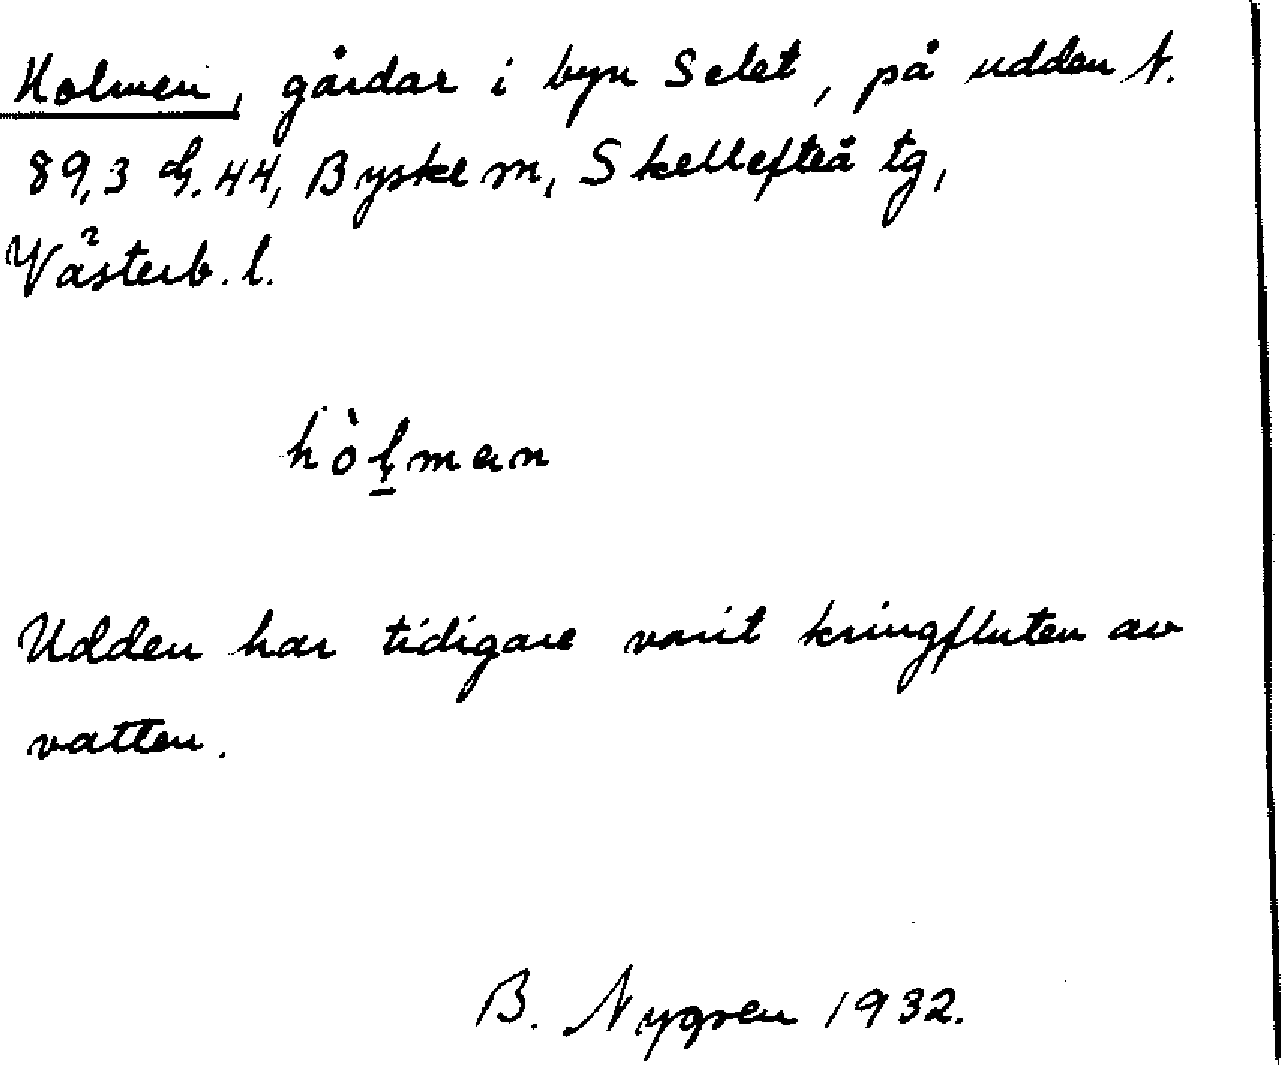 Holmen, gårdar i byn Selet, på udden N.
89,3 G. 44, Byske m, Skellefteå tg,
Västerb. l.
hò̱ḷman
Udden har tidigare varit kringfluten av
vatten.
B. Nygren 1932.